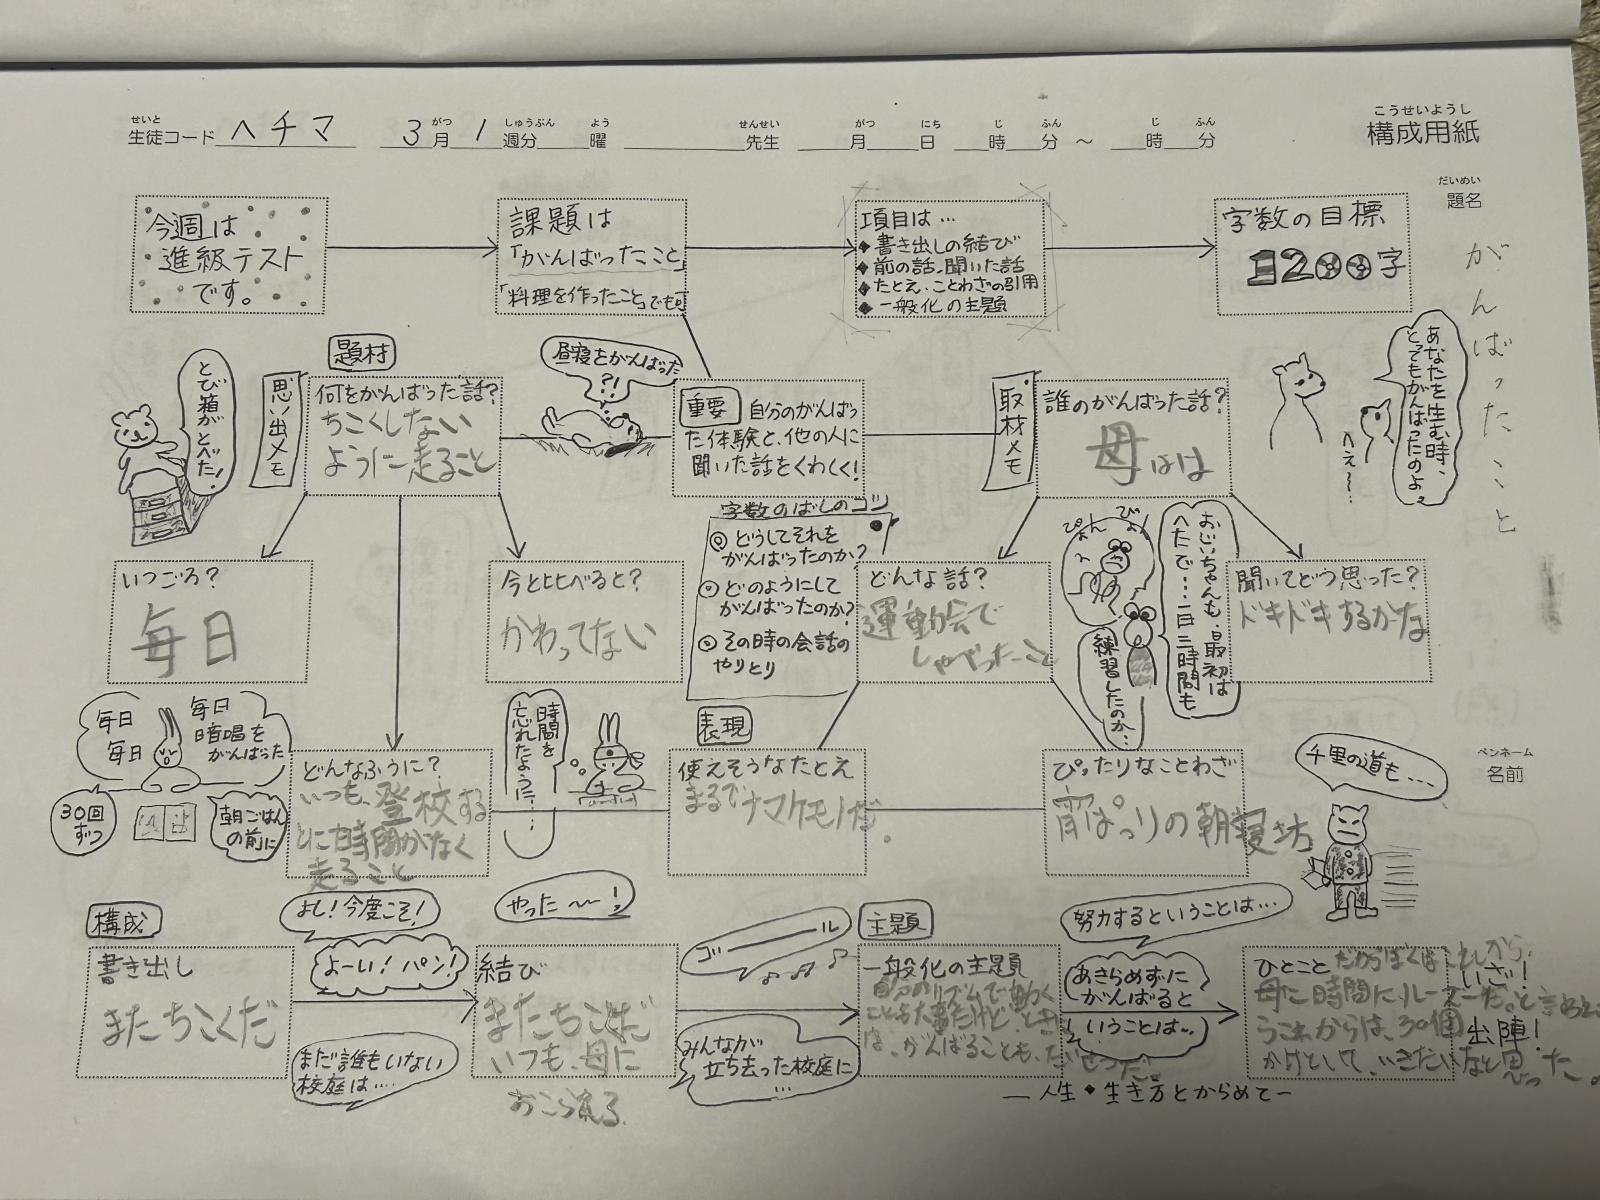 こうせいようし
構成用紙
せいと
生徒コード ヘチマ
がつ しゅうぶん よう
3月1週分 曜
せんせい
先生
がつ にち じ ふん じ ふん
月 日 時 分 〜 時 分
だいめい
題名
がんばったこと
今週は
進級テスト
です。
課題は
「がんばったこと」
「料理を作ったこと」でも可
項目は…
◆書き出しの結び
◆前の話、聞いた話
◆たとえ・ことわざの引用
◆一般化の主題
字数の目標
1200字
とび箱がとべた!
思い出メモ
題材
何をがんばった話?
ちこくしない
ように走ること
昼寝をがんばった
?!
重要 自分のがんばっ
た体験と、他の人に
聞いた話をくわしく!
取材メモ
誰のがんばった話?
母はは
へぇ〜…
あなたを生む時、
とってもがんばったのよ
いつごろ?
毎日
今と比べると?
かわってない
字数のばしのコツ
◎どうしてそれを
がんばったのか?
◎どのようにして
がんばったのか?
◎その時の会話の
やりとり
どんな話?
運動会で
しゃべったこと
ぴょん ぴょん
おじいちゃんも、最初は
へたで…一日三時間も
練習したのか…
聞いてどう思った?
ドキドキするかな
毎日
毎日
毎日
暗唱を
がんばった
30回
ずつ
朝ごはん
の前に
どんなふうに?
いつも、登校する
とに時間がなく
走ること
時間を
忘れたように…
表現
使えそうなたとえ
まるでナマケモノだ。
ぴったりなことわざ
宵っぱりの朝寝坊
千里の道も…
ペンネーム
名前
構成
書き出し
またちこくだ
よし!今度こそ!
よーい!パン!
まだ誰もいない
校庭は…
やった〜!
結び
またちこくだ
いつも、母に
おこられる
ゴ――ル
みんなが
立ち去った校庭に
…
主題
一般化の主題
自分のリズムで動く
ことも大事だけど、ときに
は、がんばることも、たいせつだ。
努力するということは…
あきらめずに
がんばると
いうことは…
ひとこと だからぼくはこれから、
いざ!
出陣!
母に時間にルーズだ。と言われ
うこれからは、30個
かけとして、いきたいなと思った。
―人生◆生き方とからめて―